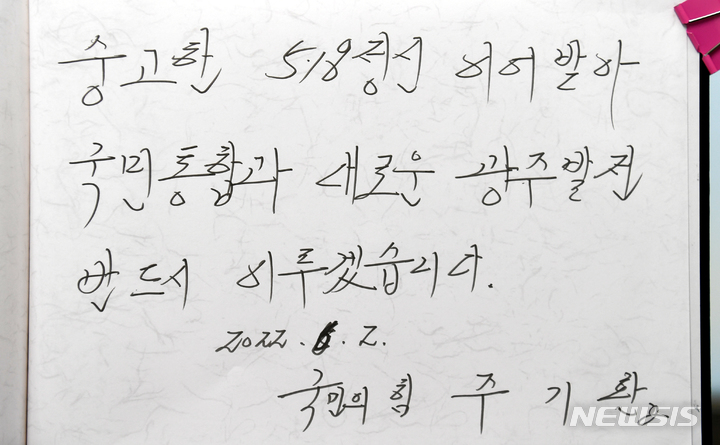 숭고한 5.18정신 이어받아
국민통합과 새로운 광주발전
반드시 이루겠습니다.
2022. 6. 2.
국민의힘 주 기 환
NEWSIS